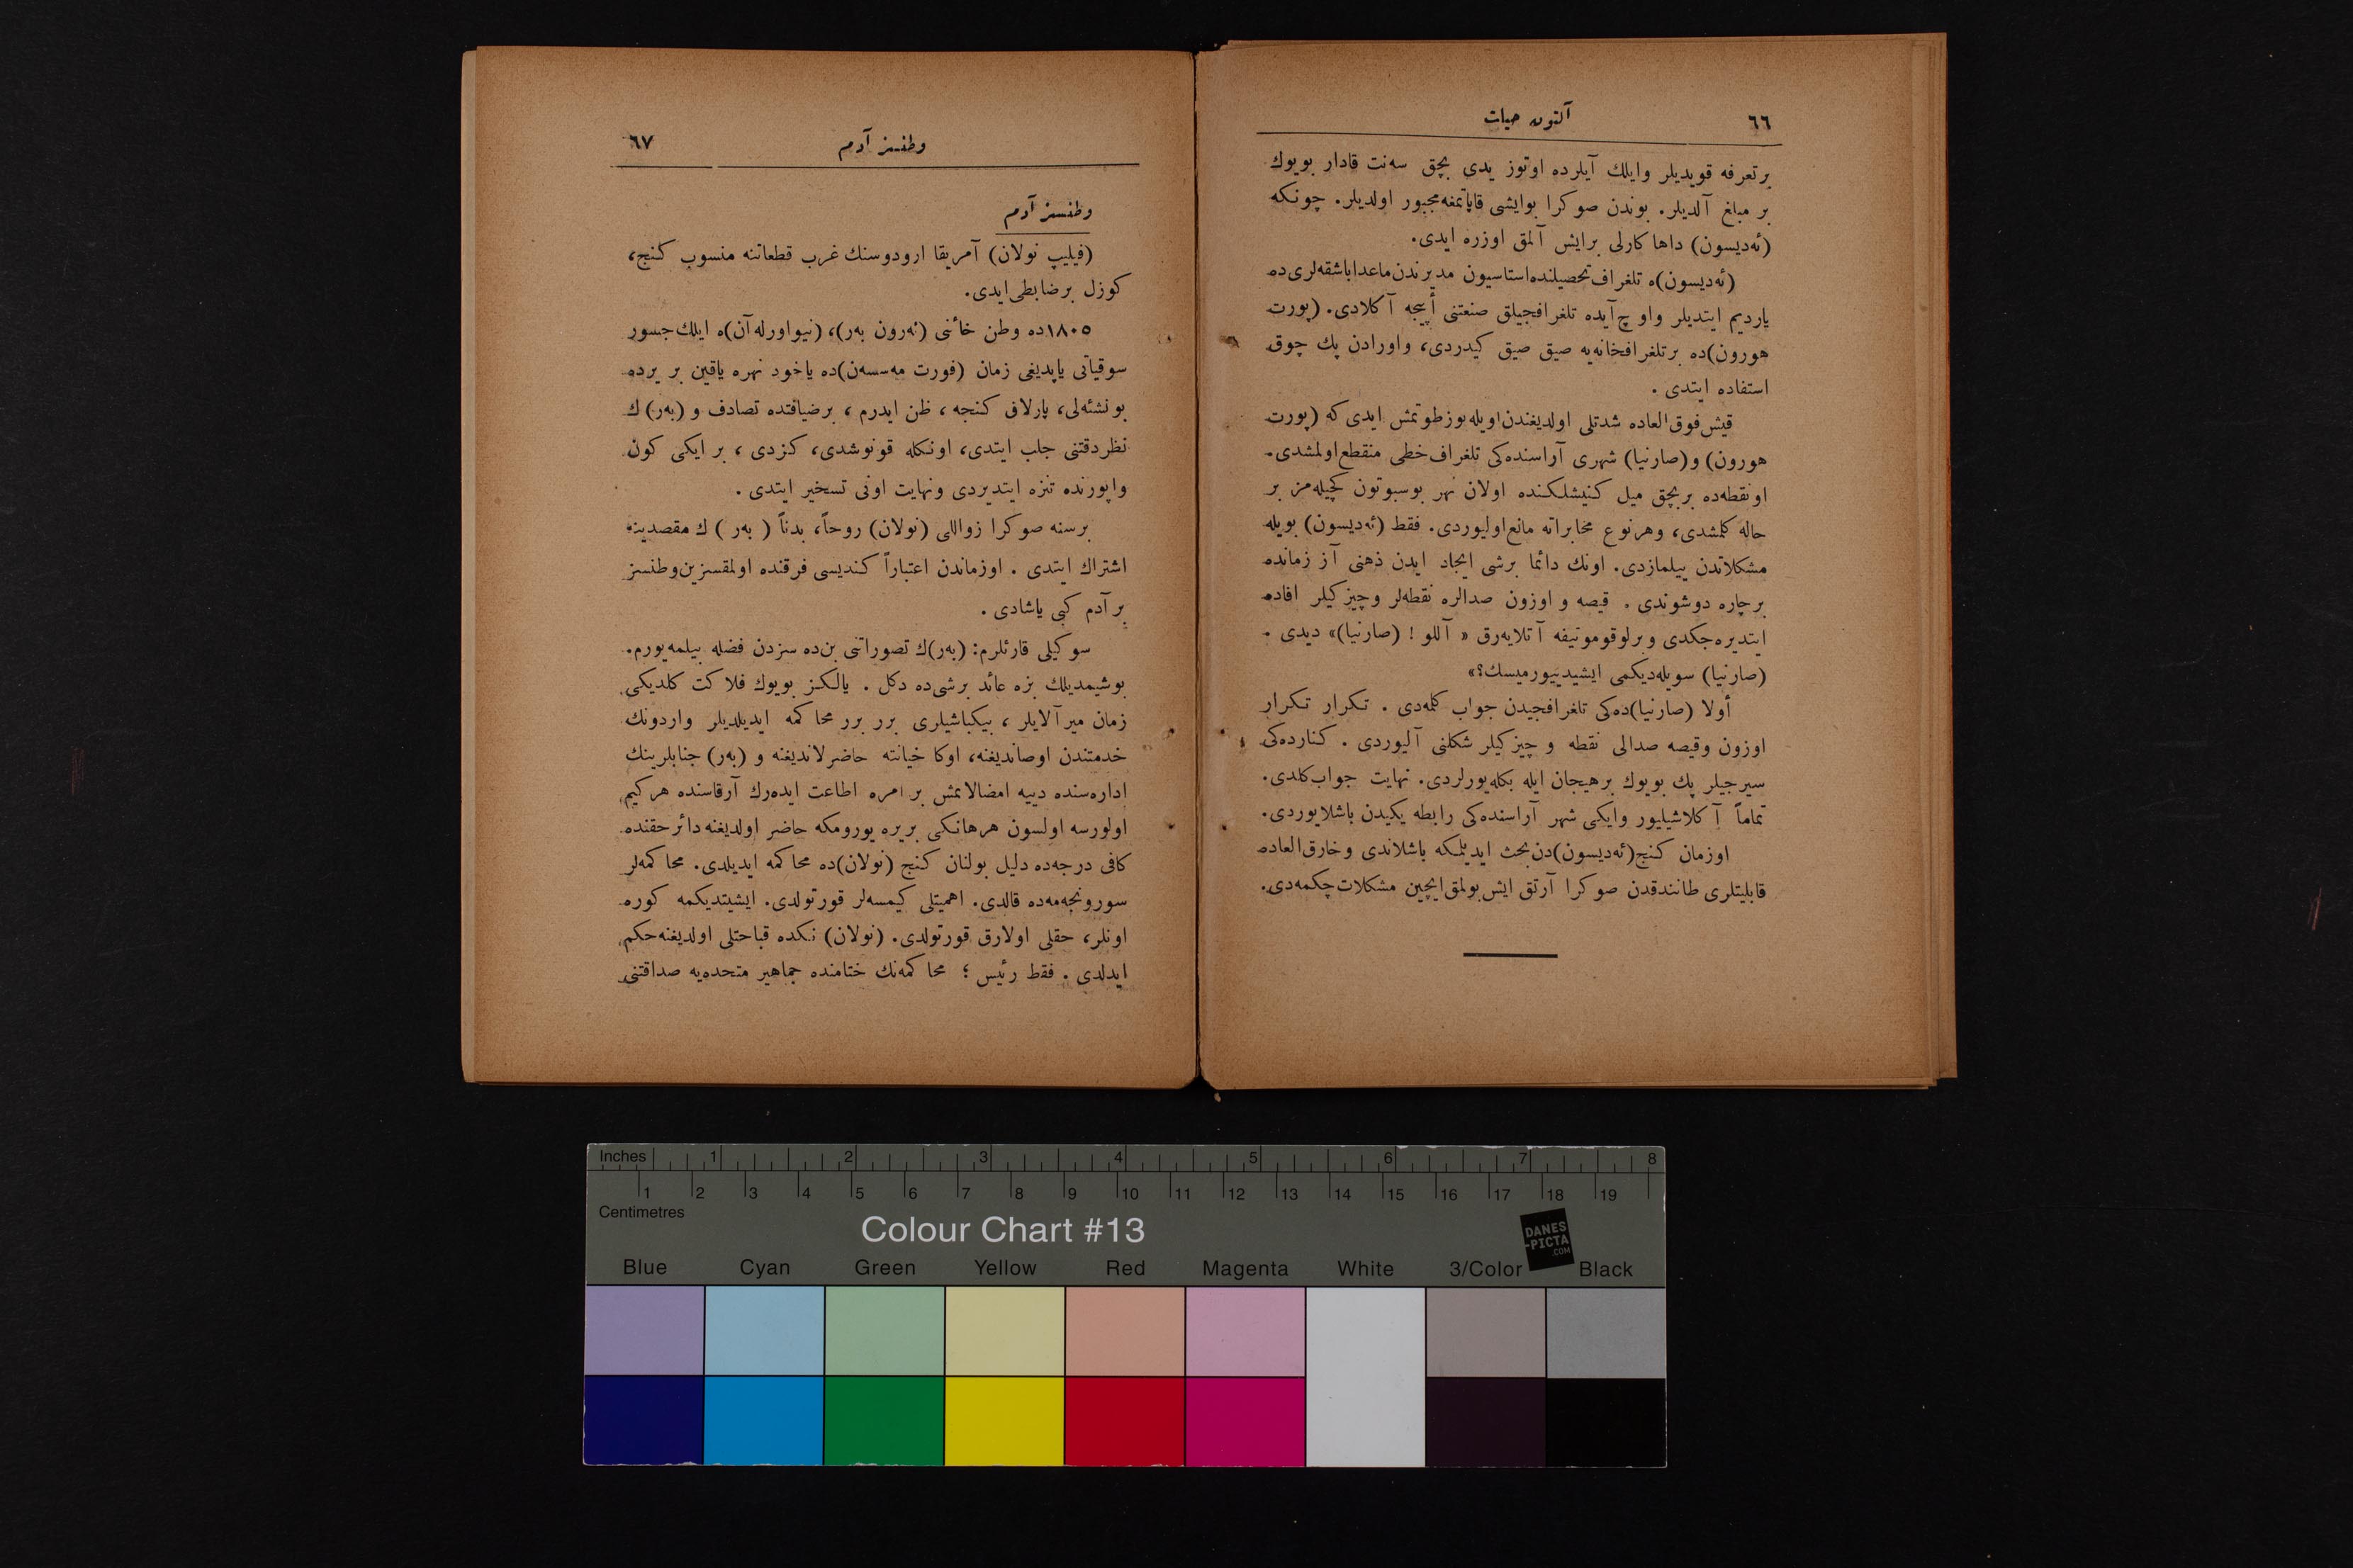 ٦٦
آلتون حیات
بر تعرفه قویدیلر وایلك آیلرده اوتوز یدی بچق سه‌نت قادار بویوك
بر مبلغ آلدیلر. بوندن صوكرا بوایشی قاپاتمغه مجبور اولدیلر. چونكه
(ئه‌دیسون) داها كارلی برایش آلمق اوزره ایدی.
(ئه‌دیسون)ه تلغراف تحصیلنده استاسیون مدیرندن ماعدا باشقه‌لری ده
یاردیم ایتدیلر واوچ آیده تلغرافجیلق صنعتنی أییجه آكلادی. (پورت
هورون)ده برتلغرافخانه‌یه صیق صیق كیدردی، واورادن پك چوق
استفاده ایتدی .
قیش فوق‌العاده شدتلی اولدیغندن اویله بوز طوتمش ایدی كه (پورت
هورون) و(صارنیا) شهری آراسنده‌كی تلغراف خطی منقطع اولمشدی.
اونقطه‌ده بربچق میل كنیشلكنده اولان نهر بوسبوتون كچیله‌مز بر
حاله كلمشدی، وهرنوع مخابراته مانع اولیوردی. فقط (ئه‌دیسون) بویله
مشكلاتدن ییلمازدی. اونك دائما برشی ایجاد ایدن ذهنی آز زمانده
برچاره دوشوندی . قیصه و اوزون صدالره نقطه‌لر وچیزكیلر افاده
ایتدیره‌جكدی وبرلوقوموتیفه آتلایه‌رق « آللو ! (صارنیا)» دیدی .
(صارنیا) سویله‌دیكمی ایشیدییورمیسك؟»
أولا (صارنیا)ده‌كی تلغرافجیدن جواب كلمه‌دی . تكرار تكرار
اوزون وقیصه صدالی نقطه و چیزكیلر شكلنی آلیوردی . كنارده‌كی
سیرجیلر پك بویوك برهیجان ایله بكله‌یورلردی. نهایت جواب كلدی.
تماماً آكلاشیلیور وایكی شهر آراسنده‌كی رابطه یكیدن باشلایوردی.
اوزمان كنج (ئه‌دیسون)دن بحث ایدیلمكه باشلاندی وخارق‌العاده
قابلیتلری طانندقدن صوكرا آرتق ایش بولمق ایچین مشكلات چكمه‌دی.
وطنسز آدم
٦٧
وطنسز آدم
(فیلیپ نولان) آمریقا اردوسنك غرب قطعاتنه منسوب كنج،
كوزل برضابطی ایدی.
١٨٠٥ده وطن خائنی (ئه‌رون به‌ر)، (نیواورله‌آن)ه ایلك جسور
سوقیاتی یاپدیغی زمان (فورت مه‌سسه‌ن)ده یاخود نهره یاقین بر یرده
بو نشئه‌لی، پارلاق كنجه ، ظن ایدرم ، برضیافتده تصادف و (به‌ر)ك
نظردقتنی جلب ایتدی، اونكله قونوشدی، كزدی ، بر ایكی كون
واپورنده تنزه ایتدیردی ونهایت اونی تسخیر ایتدی .
برسنه صوكرا زواللی (نولان) روحاً، بدناً ( به‌ر ) ك مقصدینه
اشتراك ایتدی . اوزماندن اعتباراً كندیسی فرقنده اولمقسزین وطنسز
بر آدم كبی یاشادی .
سوكیلی قارئلرم: (به‌ر)ك تصوراتنی بن‌ده سزدن فضله بیلمه‌یورم.
بوشیمدیلك بزه عائد برشی‌ده دكل . یالكز بویوك فلاكت كلدیكی
زمان میرآلایلر ، بیكباشیلری برر برر محاكمه ایدیلدیلر واردونك
خدمتندن اوصاندیغنه، اوكا خیانته حاضرلاندیغنه و (به‌ر) جنابلرینك
اداره‌سنده دییه امضالانمش بر امره اطاعت ایده‌رك آرقاسنده هركیم
اولورسه اولسون هرهانكی بریره یورومكه حاضر اولدیغنه دائر حقنده
كافی درجه‌ده دلیل بولنان كنج (نولان)ده محاكمه ایدیلدی. محاكمه‌لر
سورونجه‌مه‌ده قالدی. اهمیتلی كیمسه‌لر قورتولدی. ایشیتدیكمه كوره
اونلر، حقلی اولارق قورتولدی. (نولان) نكده قباحتلی اولدیغنه حكم
ایدلدی . فقط رئیس ؛ محاكمه‌نك ختامنده جماهیر متحده‌یه صداقتنی
Inches 1 2 3 4 5 6 7 8
1 2 3 4 5 6 7 8 9 10 11 12 13 14 15 16 17 18 19
Centimetres
Colour Chart #13
DANES
-PICTA
.COM
Blue Cyan Green Yellow Red Magenta White 3/Color Black